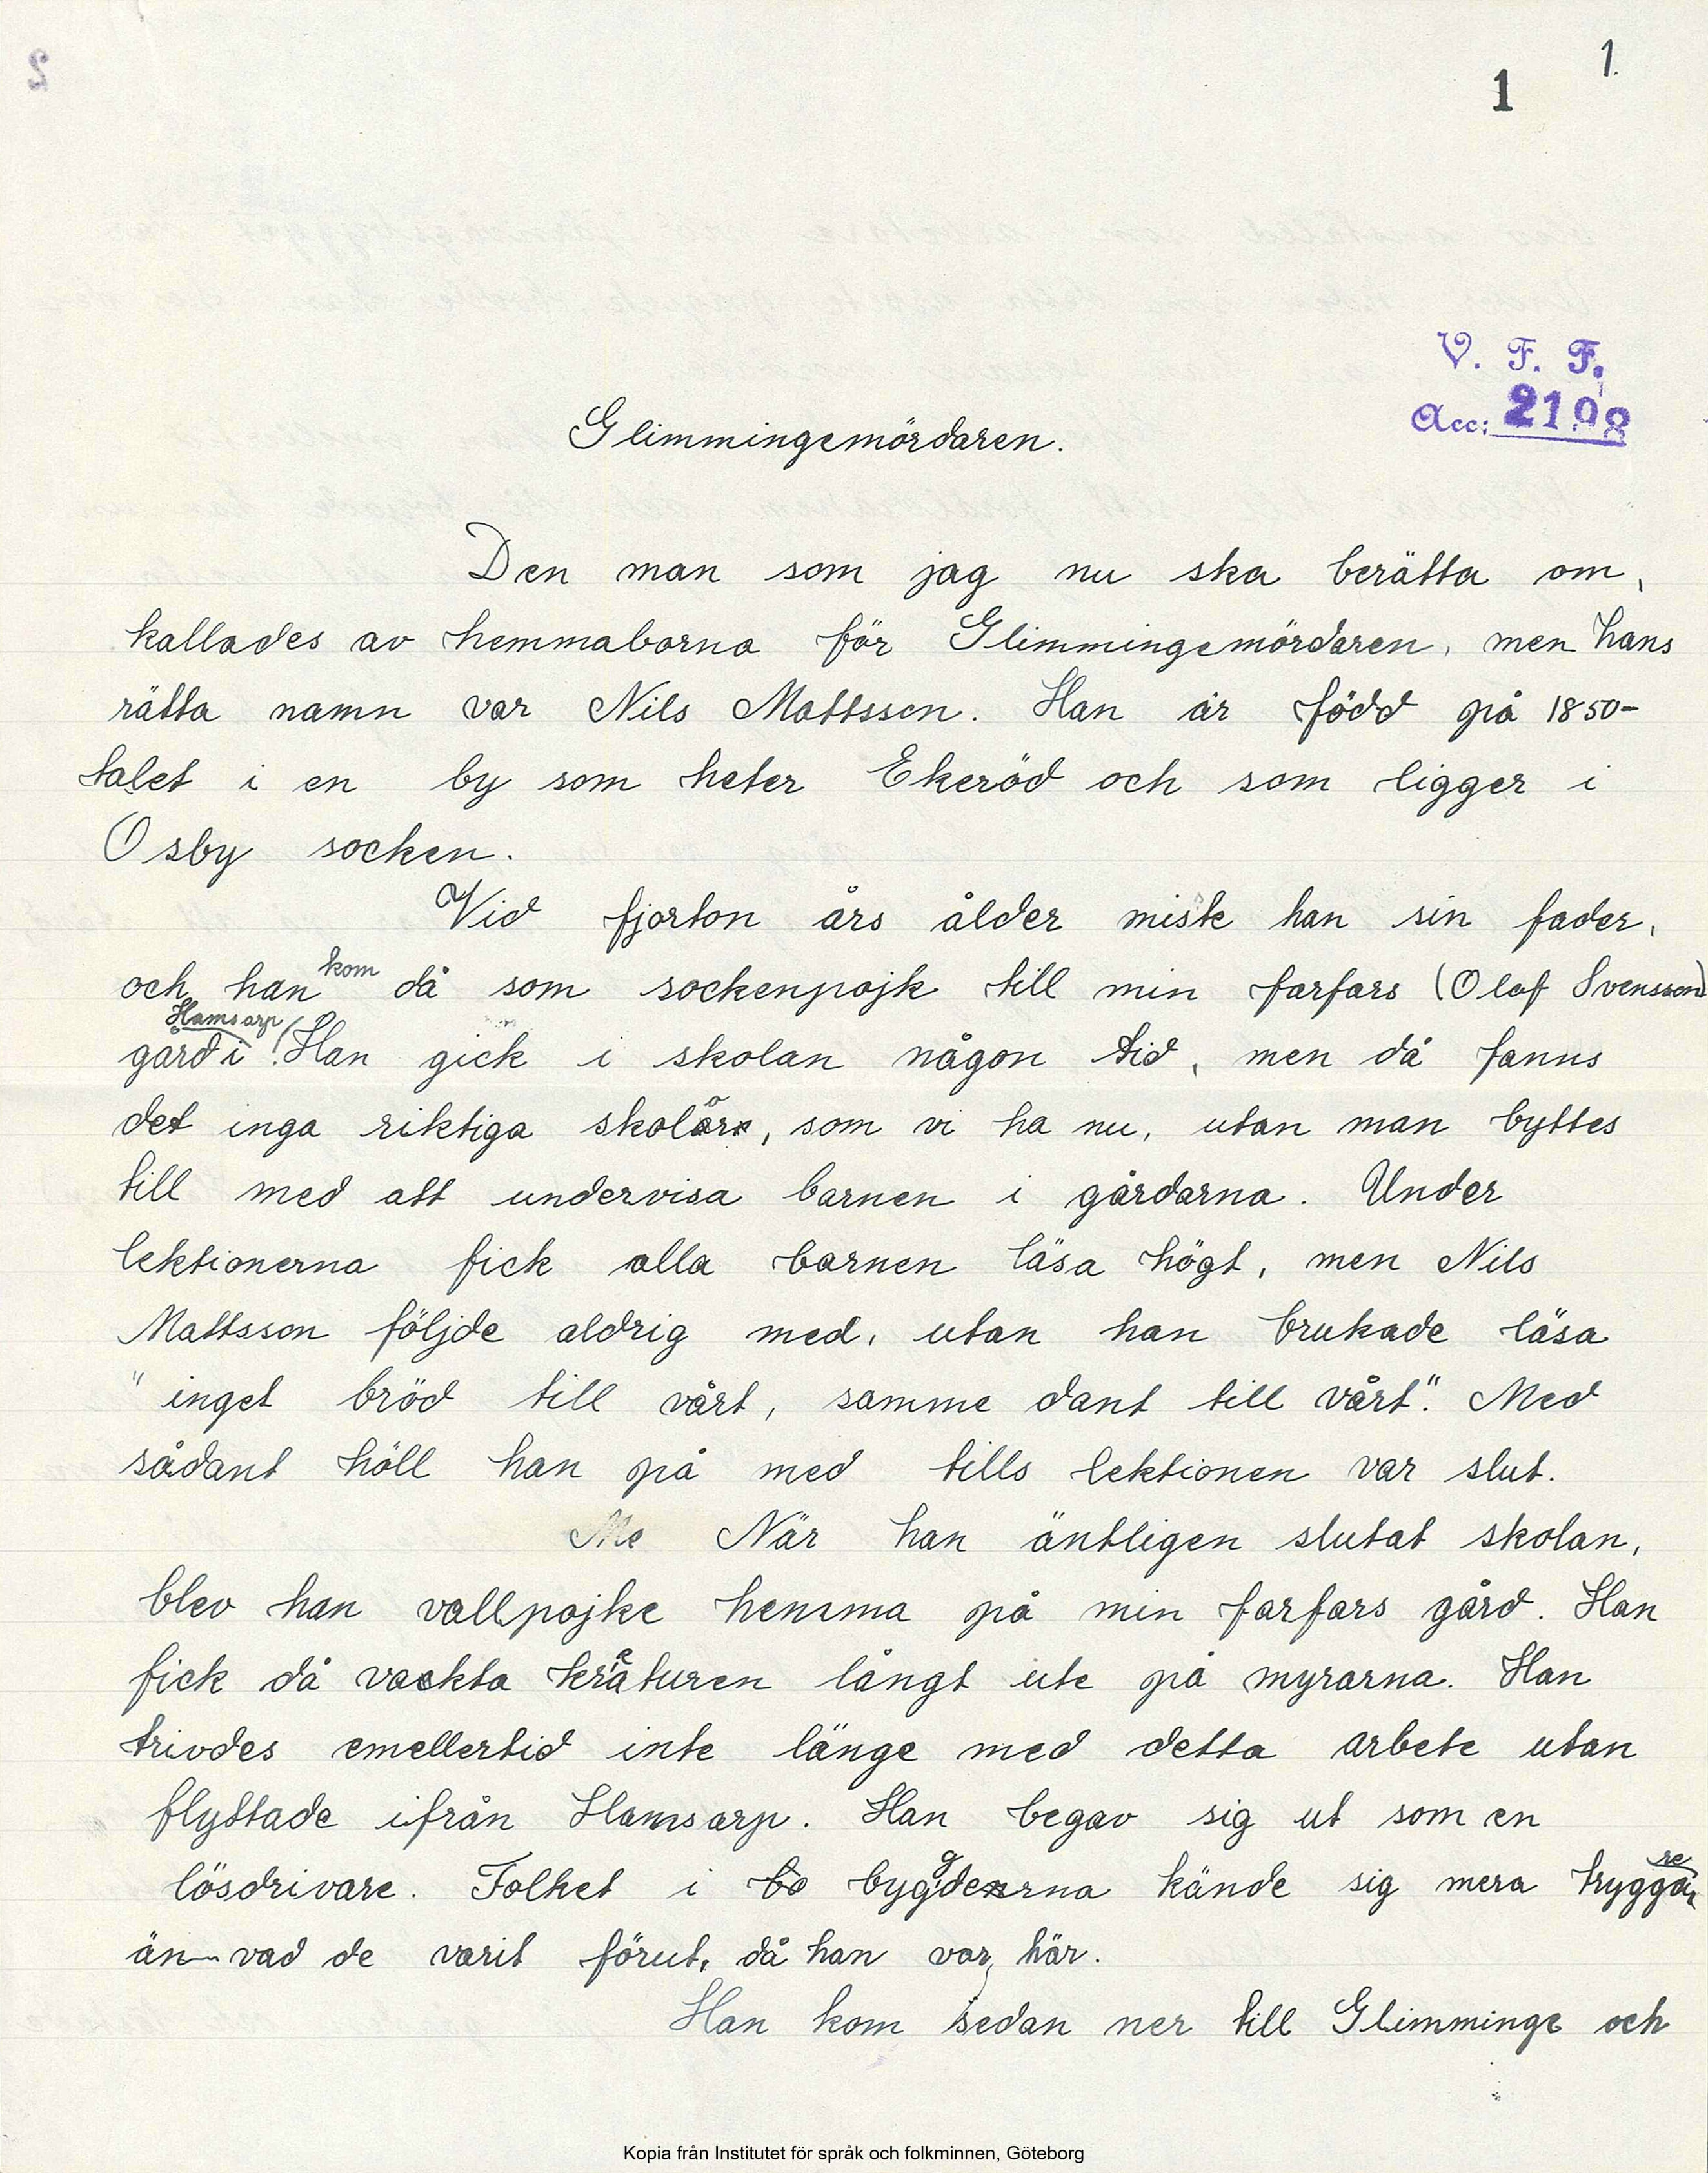 1.
1
V. F. F.
Acc: 2198
Glimmingemördaren.
Den man som jag nu ska berätta om,
kallades av hemmaborna för Glimmingemördaren, men hans
rätta namn var Nils Mattsson. Han är född på 1850-
talet i en by som heter Ekeröd och som ligger i
Osby socken.
Vid fjorton års ålder miste han sin fader,
och han kom då som sockenpojk till min farfars (Olof Svensson)
gård i Hamsarp. Han gick i skolan någon tid, men då fanns
det inga riktiga skolor, som vi ha nu, utan man byttes
till med att undervisa barnen i gårdarna. Under
lektionerna fick alla barnen läsa högt, men Nils
Mattsson följde aldrig med, utan han brukade läsa
"inget bröd till vårt, samme dant till vårt". Med
sådant höll han på med tills lektionen var slut.
Me När han äntligen slutat skolan,
blev han vallpojke hemma på min farfars gård. Han
fick då vackta kräturen långt ute på myrarna. Han
trivdes emellertid inte länge med detta arbete utan
flyttade ifrån Hamsarp. Han begav sig ut som en
lösdrivare. Folket i bo bygderna kände sig mera tryggare
än vad de varit förut, då han var här.
Han kom sedan ner till Glimminge och
Kopia från Institutet för språk och folkminnen, Göteborg